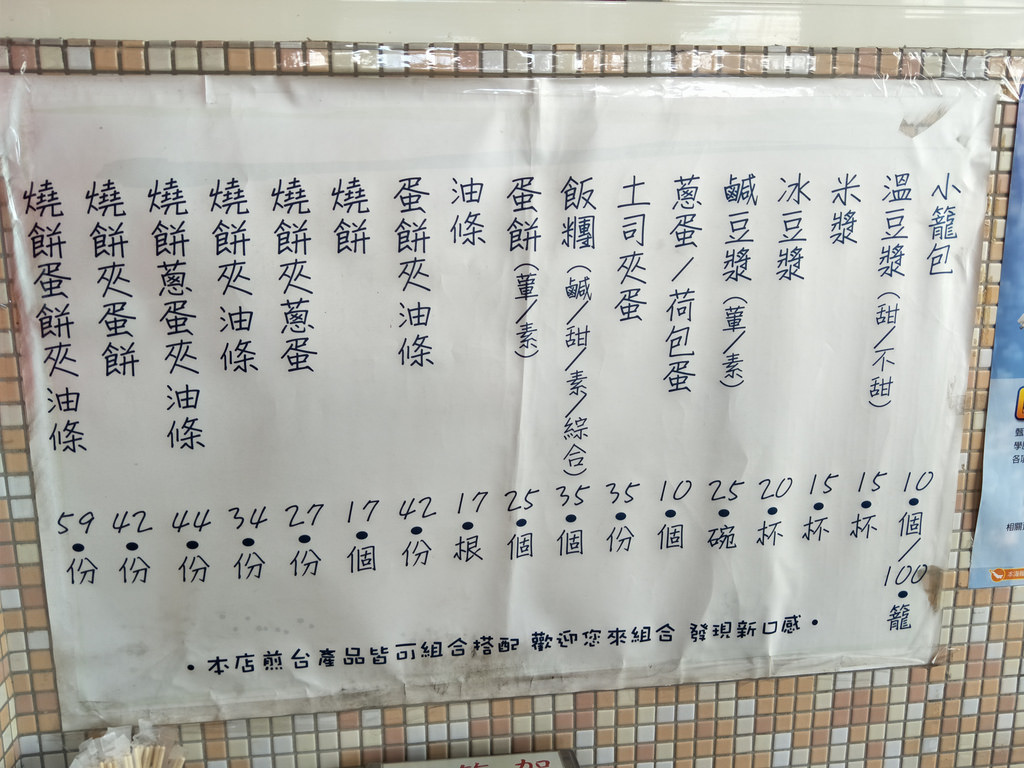 小籠包 10・個/100・籠
溫豆漿(甜/不甜) 15・杯
米漿 15・杯
冰豆漿 20・杯
鹹豆漿(葷/素) 25・碗
蔥蛋/荷包蛋 10・個
土司夾蛋 35・份
飯糰(鹹/甜/素/綜合) 35・個
蛋餅(葷/素) 25・個
油條 17・根
蛋餅夾油條 42・份
燒餅 17・個
燒餅夾蔥蛋 27・份
燒餅夾油條 34・份
燒餅蔥蛋夾油條 44・份
燒餅夾蛋餅 42・份
燒餅蛋餅夾油條 59・份
・本店煎台產品皆可組合搭配 歡迎您來組合 發現新口感・
相關